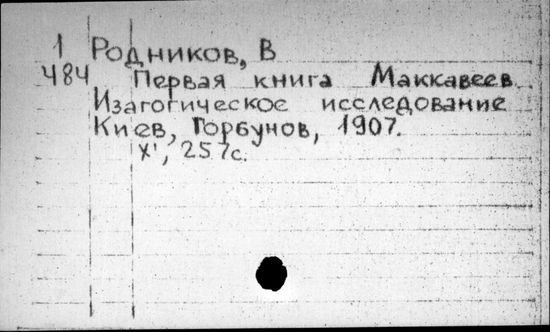 1 Родников, В
484 Первая книга Маккавеев
Изагогическое исследование
Киев, Горбунов, 1907.
X', 257с.